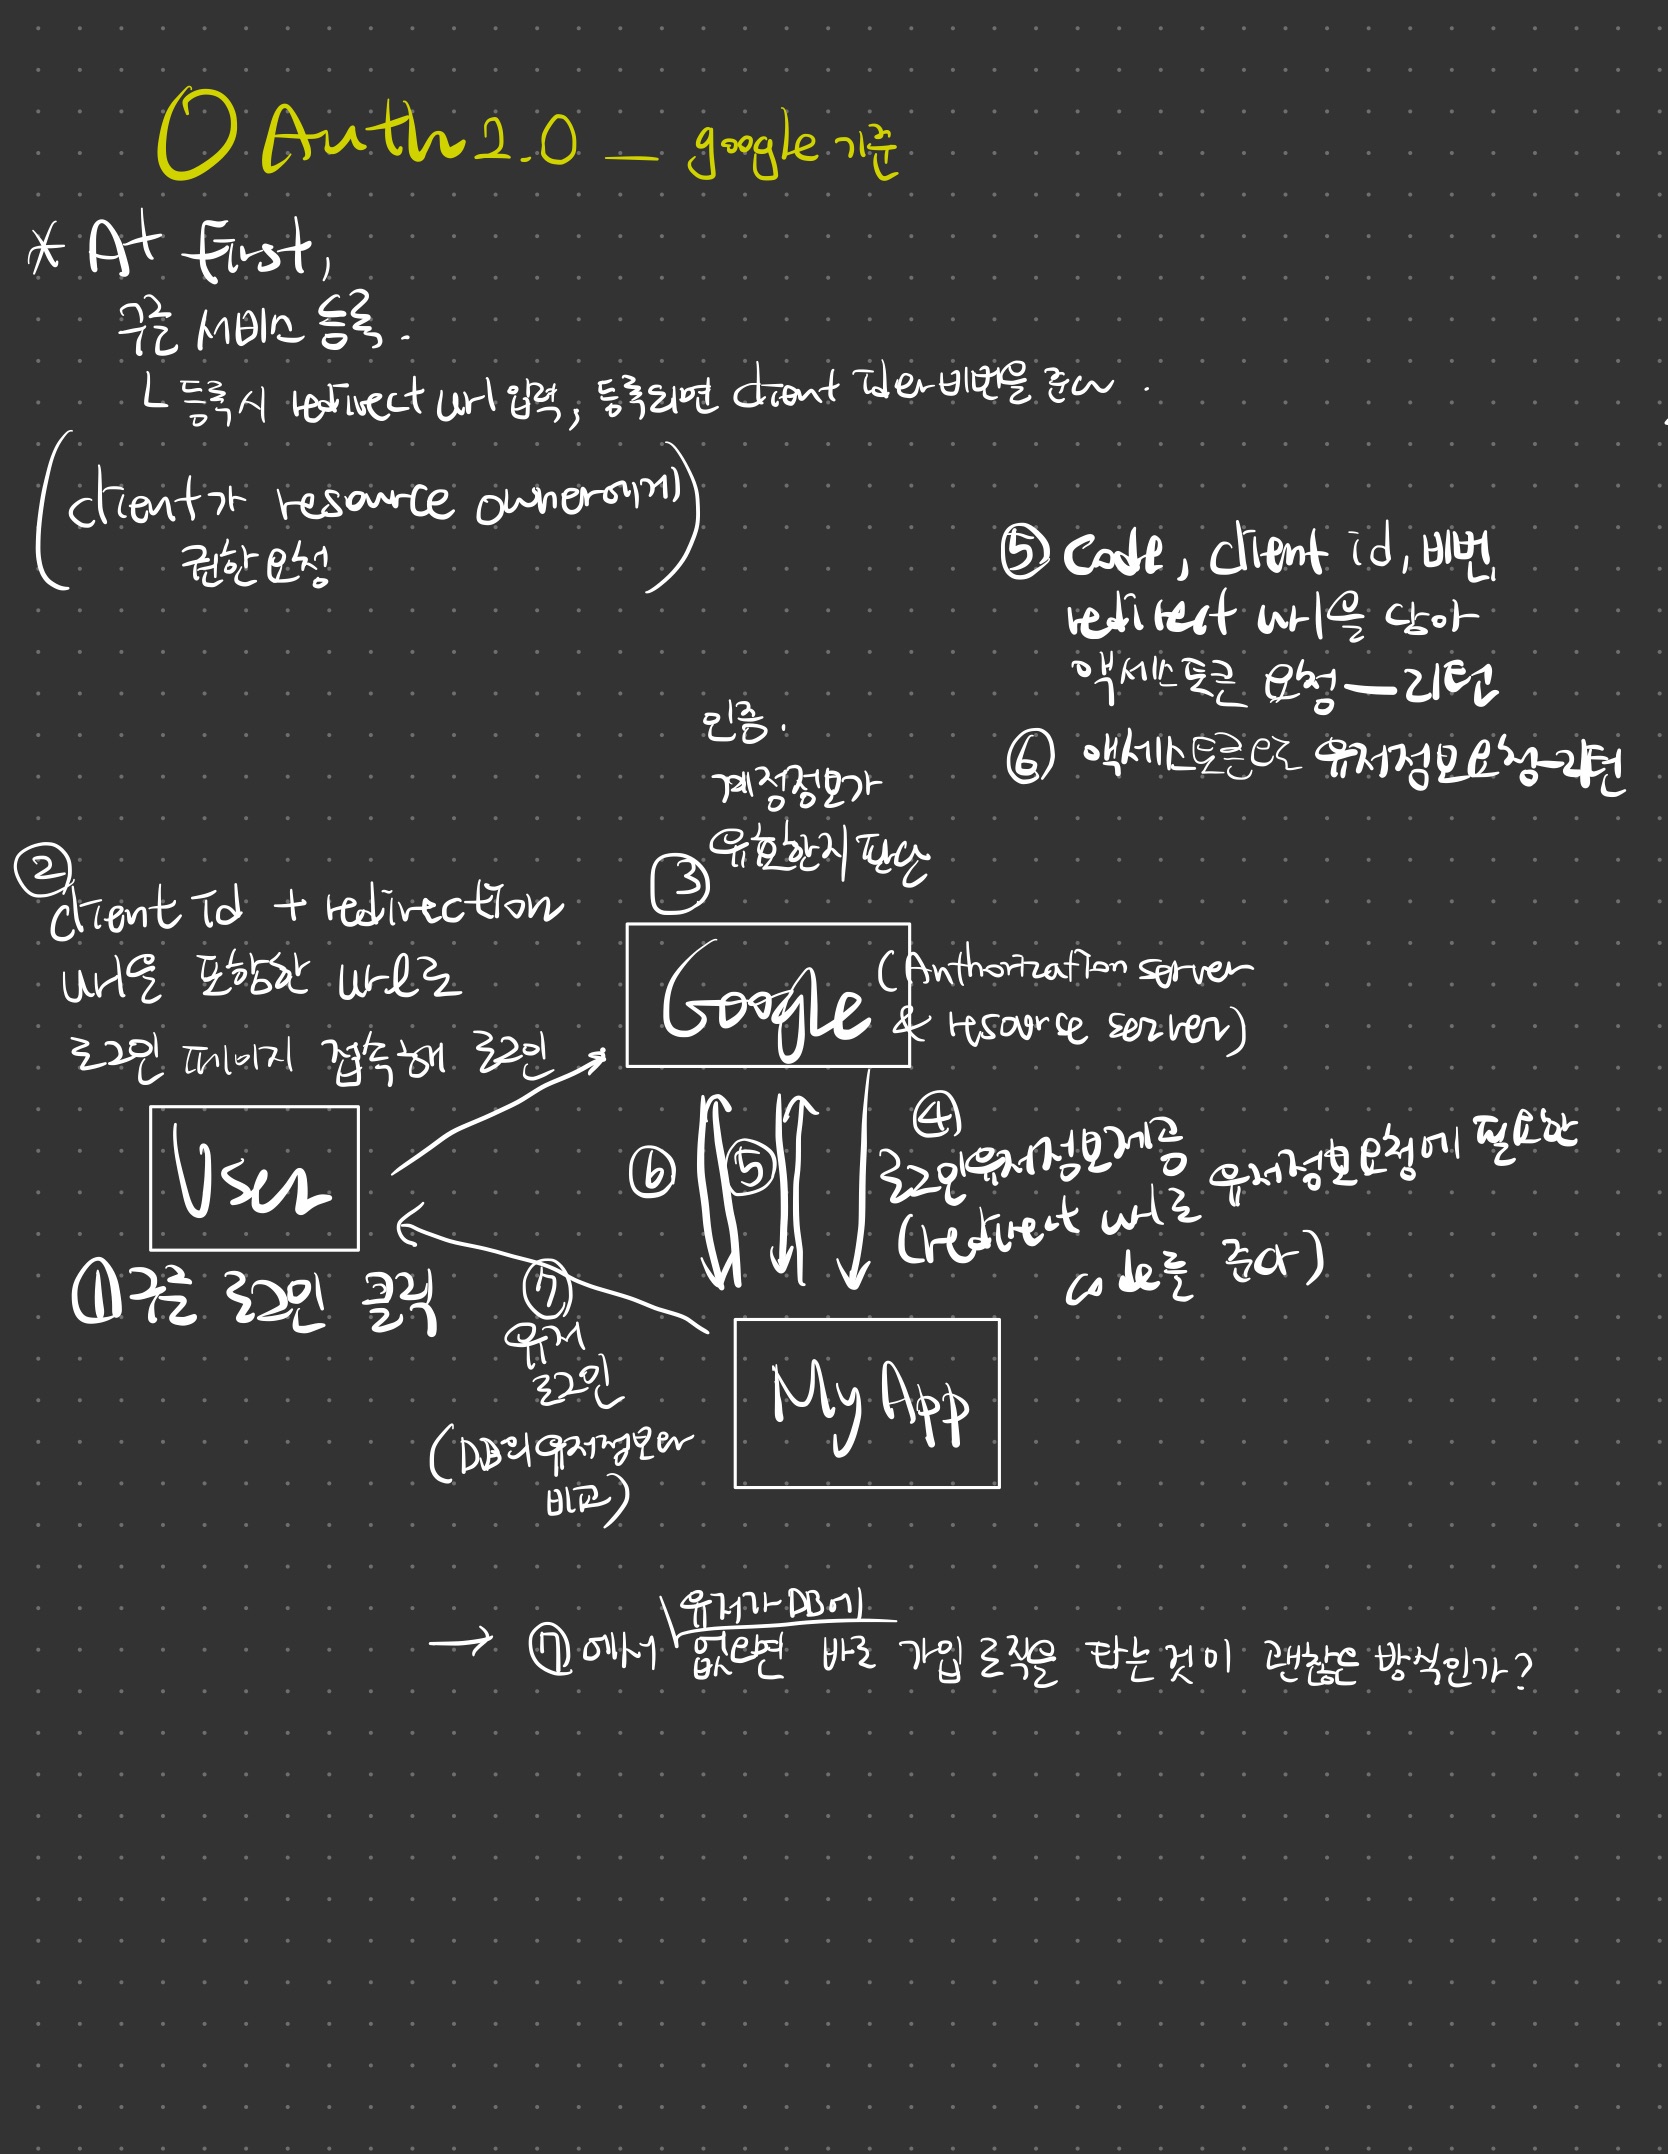 OAuth 2.0 _ google 기준
* At first,
구글 서비스 등록.
ㄴ 등록시 redirect url 입력, 등록되면 client id와 비번을 준다.
(client가 resource owner에게
권한 요청)
⑤ code, client id, 비번,
redirect url을 담아
액세스토큰 요청 — 리턴
⑥ 액세스토큰으로 유저정보요청 — 리턴
인증.
계정정보가
유효한지 판단
③
②
client id + redirection
url을 포함한 url로
로그인 페이지 접속해 로그인
Google (Authorization server
& resource server)
User
① 구글 로그인 클릭
⑥ ⑤ ④
로그인유저정보제공 유저정보요청에 필요한
(redirect url로
code를 준다)
⑦
유저
로그인
(DB의 유저정보와
비교)
My App
유저가 DB에
→ ⑦에서 없으면 바로 가입 로직을 타는 것이 괜찮은 방식인가?